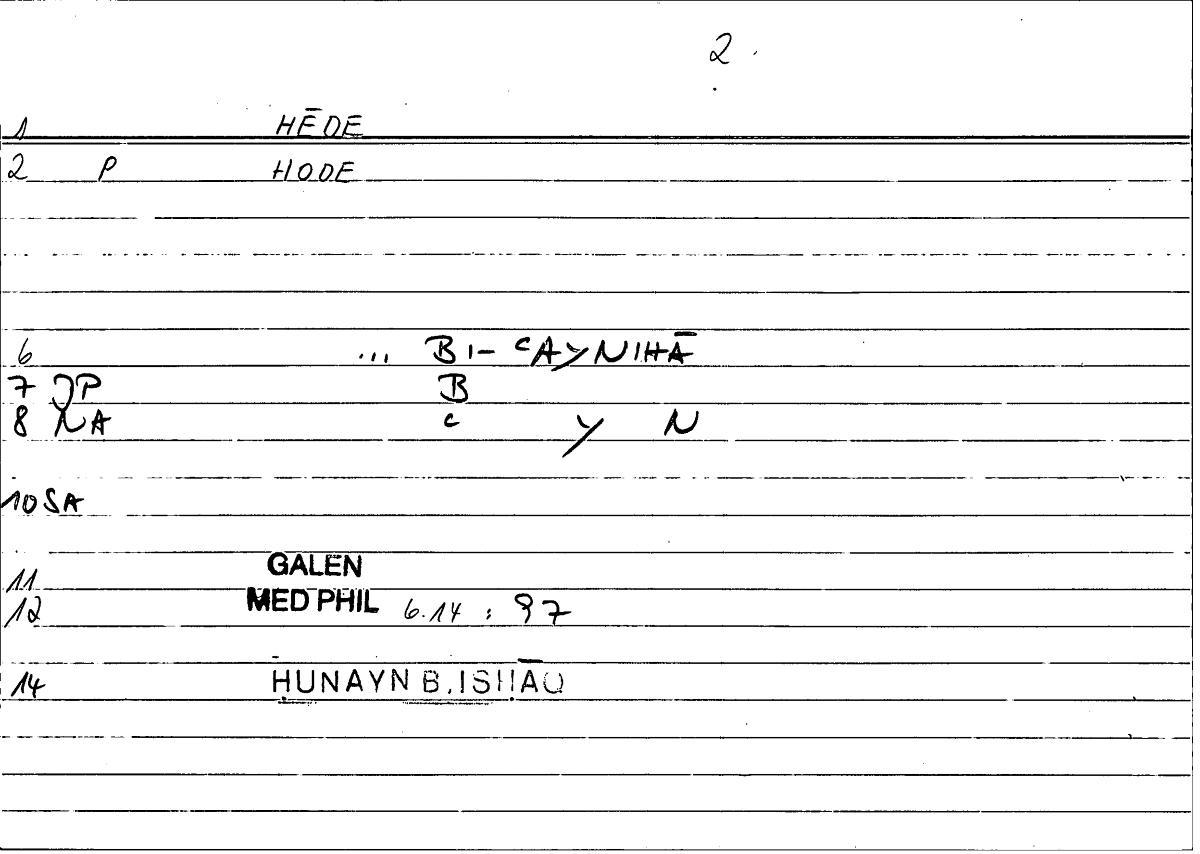 2.
1 HĒDE
2 P HODE
6 ... BI- cAYNIHĀ
7 JP B
8 NA c Y N
10 SA
11 GALEN
12 MED PHIL 6.14 : 97
14 ḤUNAYN B. ISḤĀQ